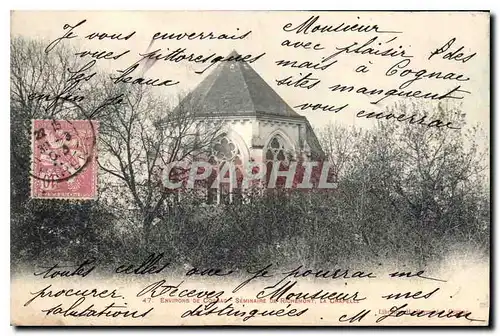 Monsieur
Je vous enverrais avec plaisir des
vues pittoresques mais à Cognac
les beaux sites manquent
vous enverrai
CPARAMA
47. ENVIRONS DE COGNAC. SÉMINAIRE DE RICHEMONT, LA CHAPELLE
toutes celles que je pourrai me
procurer. Recevez Monsieur mes
salutations distinguées